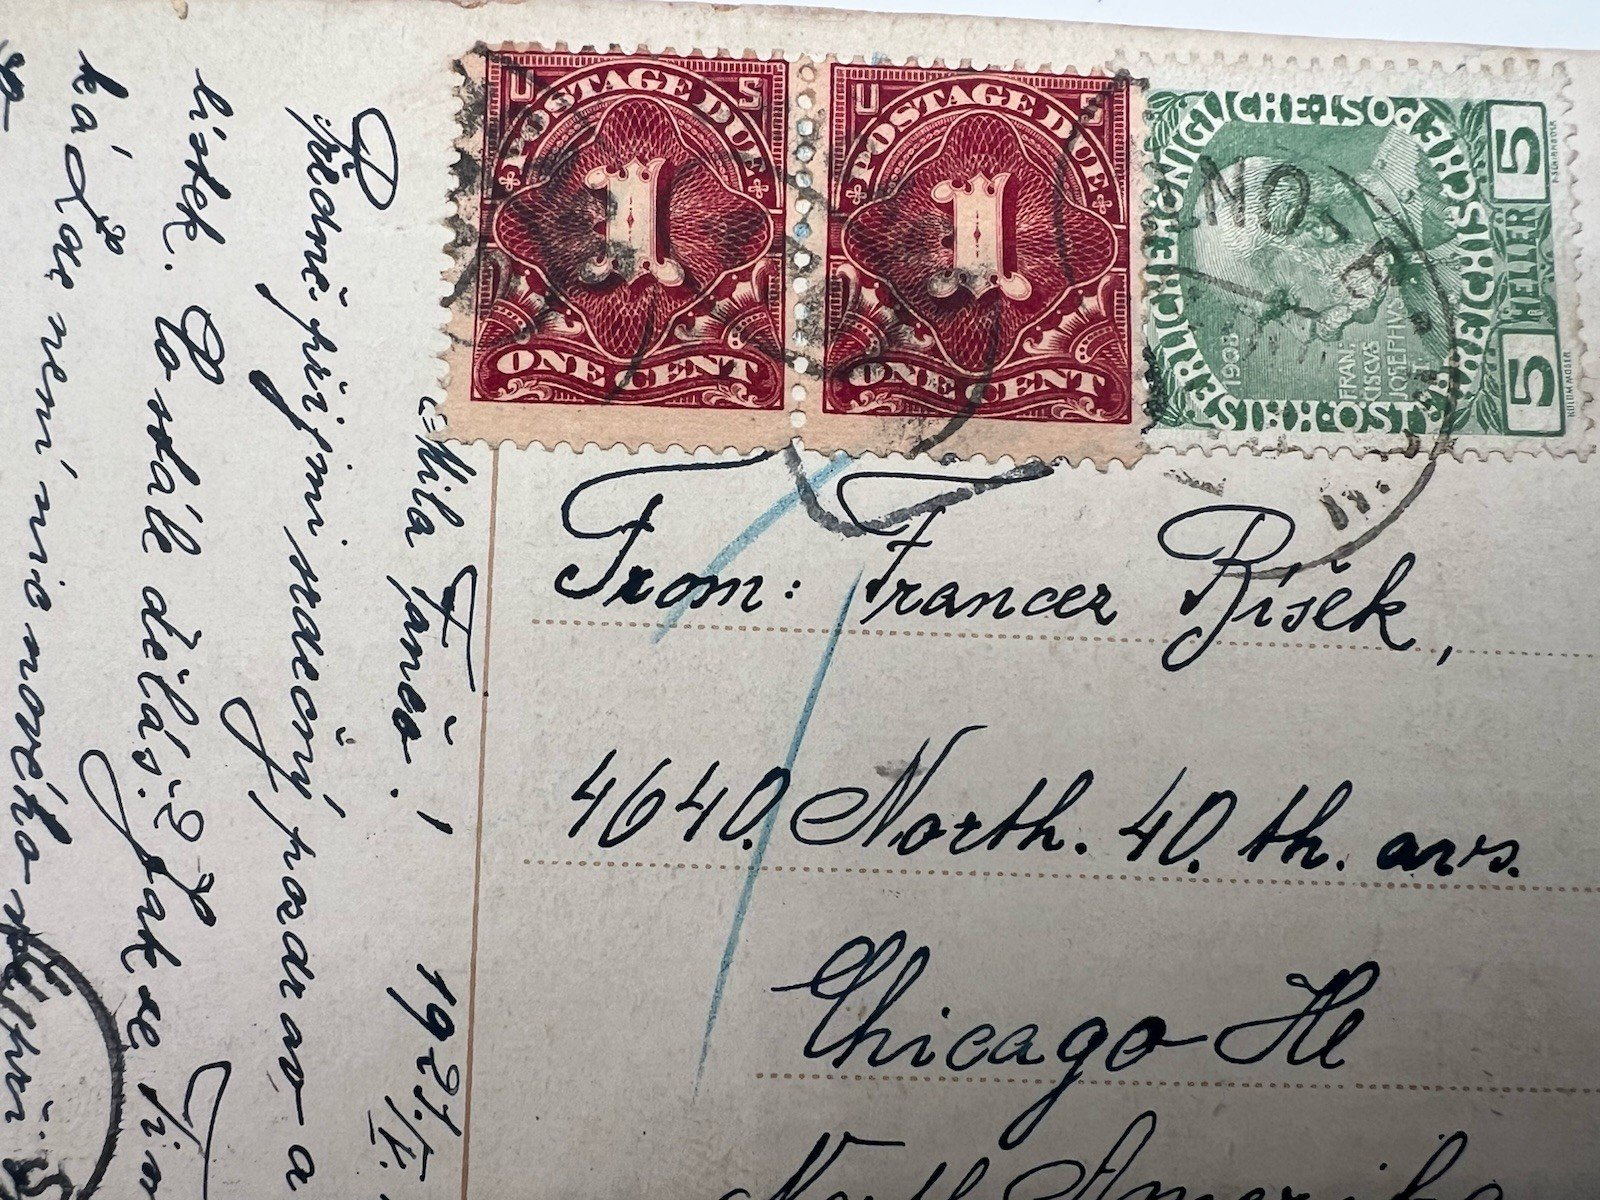 U S
POSTAGE DUE
1
ONE CENT
U S
POSTAGE DUE
1
ONE CENT
KAISERLICHE KÖNIGLICHE ÖSTERREICHISCHE POST
5 HELLER 5
1908
FRAN
CISCVS
JOSEPHVS
From: Francez Ríšek,
4640. North. 40. th. avs.
Chicago Ill
North Amerika
Milá 1921./V.
Předně přijmi srdečný pozdrav a
lístek. Co stále děláš? Jak se
není nic nového